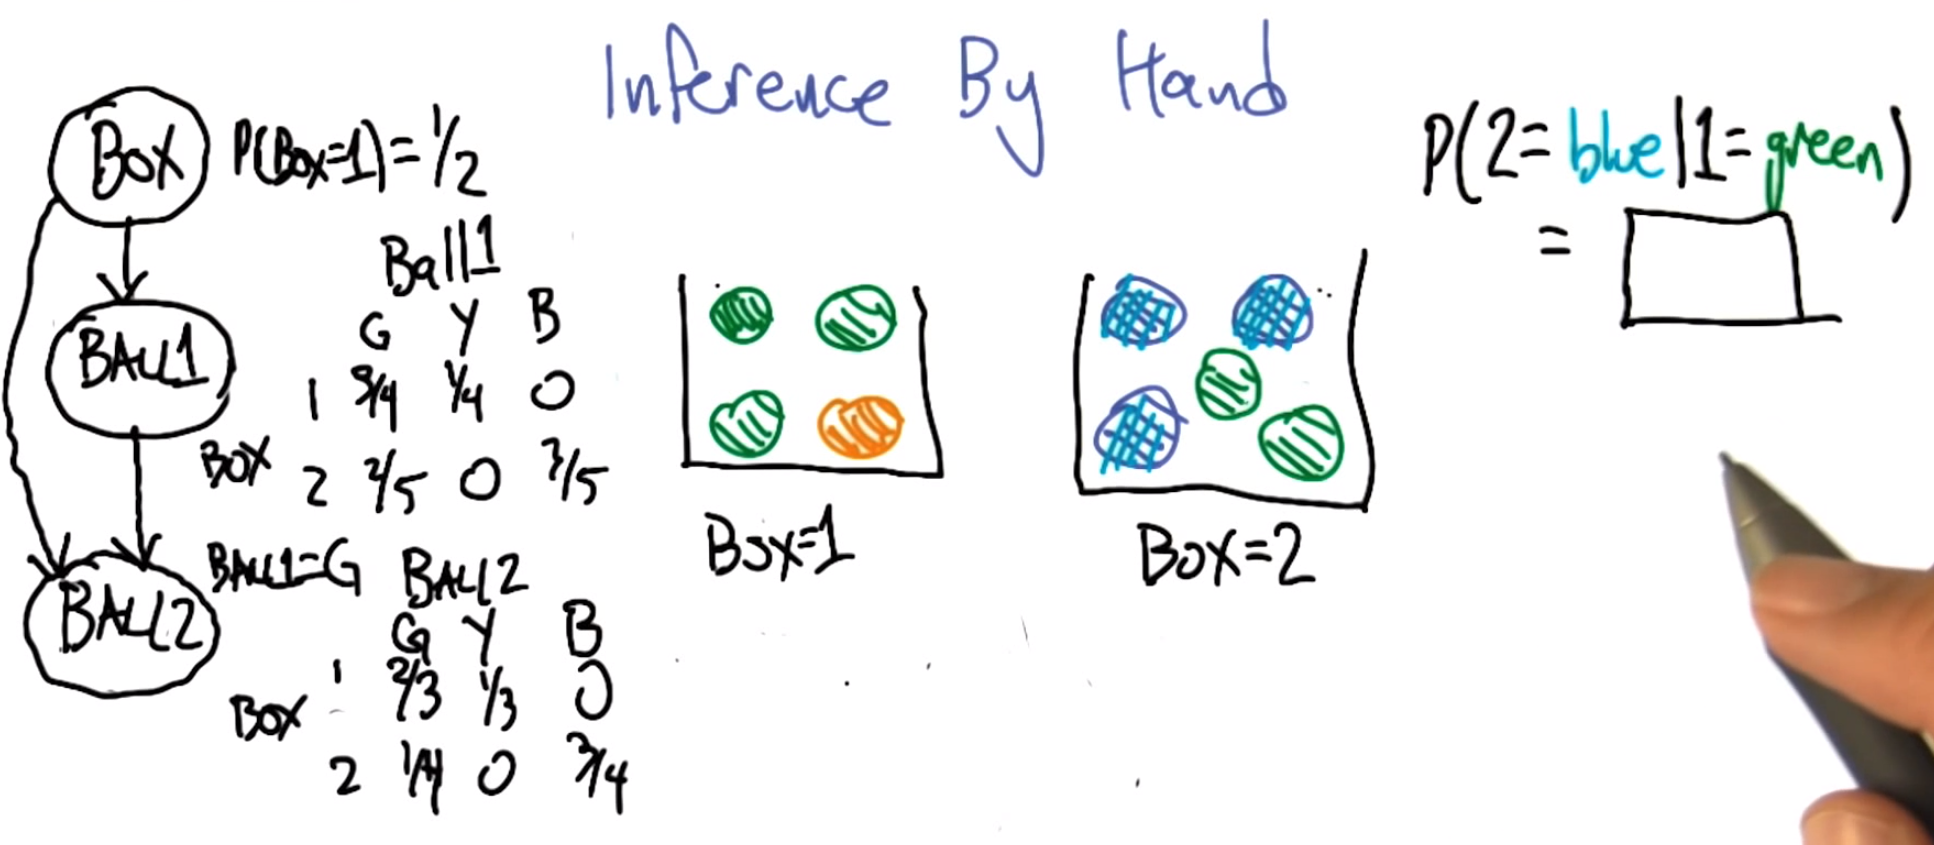 Inference By Hand
BOX P(Box=1)=1/2
BALL1
BALL2
Ball1
G Y B
1 3/4 1/4 0
BOX 2 2/5 0 3/5
BALL1=G BALL2
G Y B
1 2/3 1/3 0
BOX
2 1/4 0 3/4
Box=1
Box=2
P(2=blue|1=green)
=